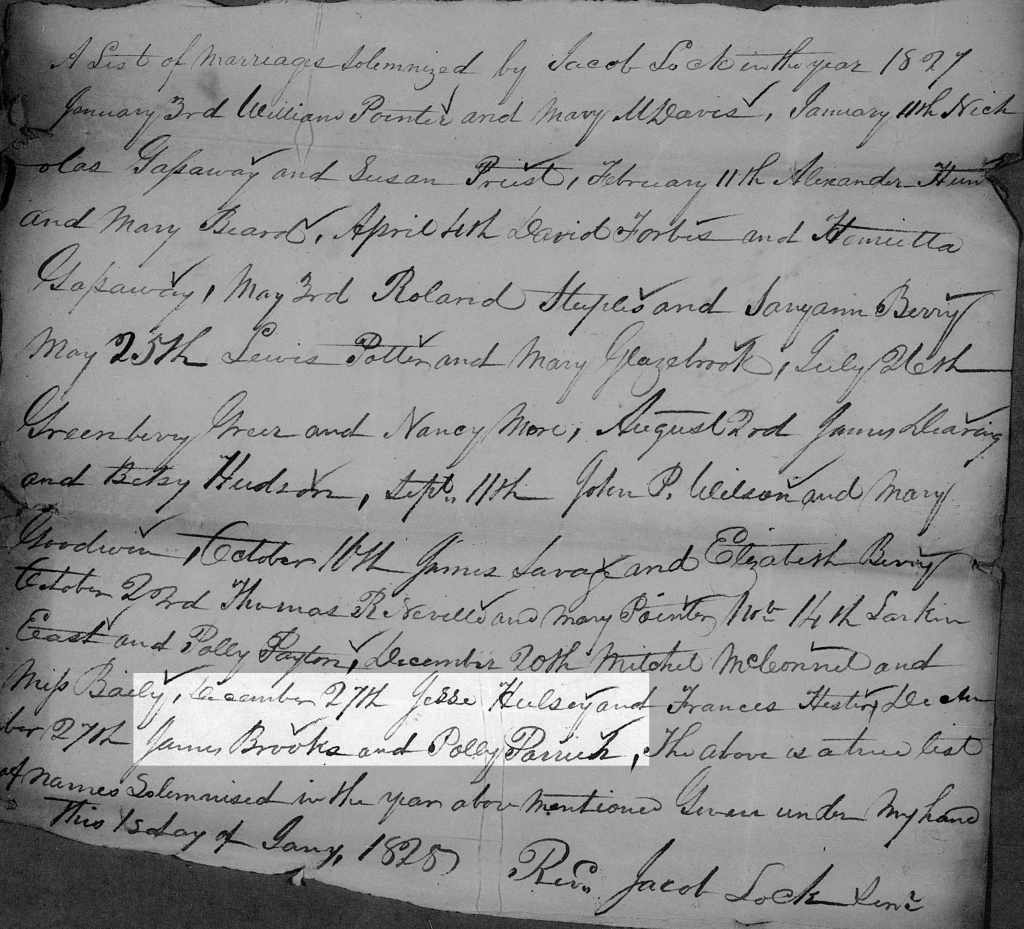 A List of Marriages Solemnized by Jacob Lock in the year 1827
January 3rd William Pointer and Mary McDavis, January 11th Nich
olas Gassaway and Susan Priest, February 11th Alexander Hun
and Mary Beard, April 4th David Forbis and Henrietta
Gassaway, May 3rd Roland Steples and Saryann Berry
May 25th Lewis Potter and Mary Glazebrook, July 26th
Greenberry Greer and Nancy More, August 2rd James Dearing
and Betsy Hudson, Sept. 11th John P. Wilson and Mary
Goodwin, October 16th James Savage and Elizabeth Berry
October 23rd Thomas R Nevills and Mary Pointer Nov 14th Larkin
East and Polly Payton, December 20th Mitchel McConnel and
Miss Baily, December 27th Jesse Hulsey and Frances Hester, Decem
ber 27th James Brooks and Polly Parrish, The above is a true list
of names Solemnised in the year above mentioned Given under My hand
This 1st day of Jany. 1828
Revd. Jacob Lock Senr